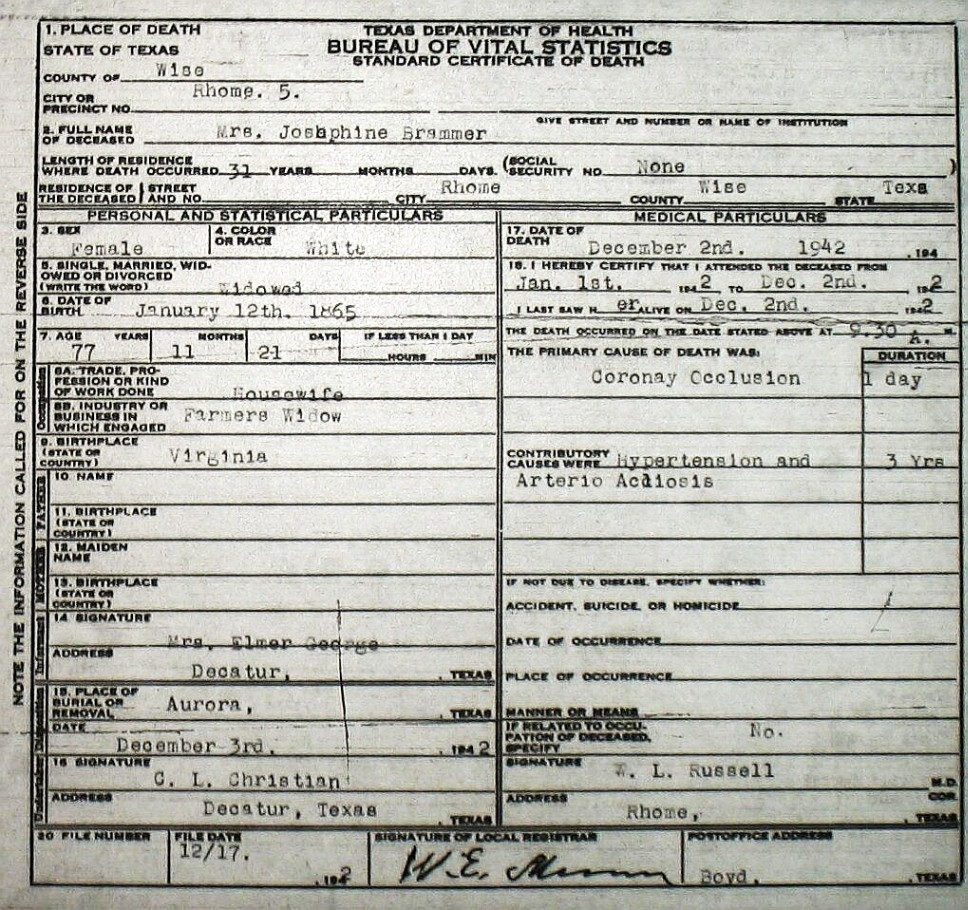 NOTE THE INFORMATION CALLED FOR ON THE REVERSE SIDE
TEXAS DEPARTMENT OF HEALTH
BUREAU OF VITAL STATISTICS
STANDARD CERTIFICATE OF DEATH
1. PLACE OF DEATH
STATE OF TEXAS
COUNTY OF Wise
CITY OR PRECINCT NO. Rhome. 5.
GIVE STREET AND NUMBER OR NAME OF INSTITUTION
2. FULL NAME OF DECEASED Mrs. Josephine Brammer
LENGTH OF RESIDENCE WHERE DEATH OCCURRED 31 YEARS MONTHS DAYS. (SOCIAL SECURITY NO. None )
RESIDENCE OF THE DECEASED STREET AND NO. CITY Rhome COUNTY Wise STATE Texa
PERSONAL AND STATISTICAL PARTICULARS
3. SEX Female 4. COLOR OR RACE White
5. SINGLE, MARRIED, WIDOWED OR DIVORCED (WRITE THE WORD) Widowed
6. DATE OF BIRTH January 12th. 1865
7. AGE 77 YEARS 11 MONTHS 21 DAYS IF LESS THAN 1 DAY HOURS MIN
Occupation
8A. TRADE, PROFESSION OR KIND OF WORK DONE Housewife
8B. INDUSTRY OR BUSINESS IN WHICH ENGAGED Farmers Widow
9. BIRTHPLACE (STATE OR COUNTRY) Virginia
FATHER
10. NAME
11. BIRTHPLACE (STATE OR COUNTRY)
MOTHER
12. MAIDEN NAME
13. BIRTHPLACE (STATE OR COUNTRY)
Informant
14 SIGNATURE Mrs. Elmer George
ADDRESS Decatur, , TEXAS
Undertaker Disposition
15. PLACE OF BURIAL OR REMOVAL Aurora, , TEXAS
DATE December 3rd. , 1942
16 SIGNATURE C. L. Christian
ADDRESS Decatur, Texas , TEXAS
MEDICAL PARTICULARS
17. DATE OF DEATH December 2nd. 1942 , 194
18. I HEREBY CERTIFY THAT I ATTENDED THE DECEASED FROM
Jan. 1st. 1942, TO Dec. 2nd. 1942
I LAST SAW H er ALIVE ON Dec. 2nd. 1942
THE DEATH OCCURRED ON THE DATE STATED ABOVE AT 9.30 A. M.
THE PRIMARY CAUSE OF DEATH WAS: DURATION
Coronay Occlusion 1 day
CONTRIBUTORY CAUSES WERE Hypertension and 3 Yrs
Arterio
IF NOT DUE TO DISEASE, SPECIFY WHETHER:
ACCIDENT, SUICIDE, OR HOMICIDE
DATE OF OCCURRENCE
PLACE OF OCCURRENCE
MANNER OR MEANS
IF RELATED TO OCCUPATION OF DECEASED, SPECIFY No.
SIGNATURE W. L. Russell M.D. COR.
ADDRESS Rhome, , TEXAS
20 FILE NUMBER
FILE DATE 12/17. , 1942
SIGNATURE OF LOCAL REGISTRAR W.E.
POSTOFFICE ADDRESS Boyd. , TEXAS